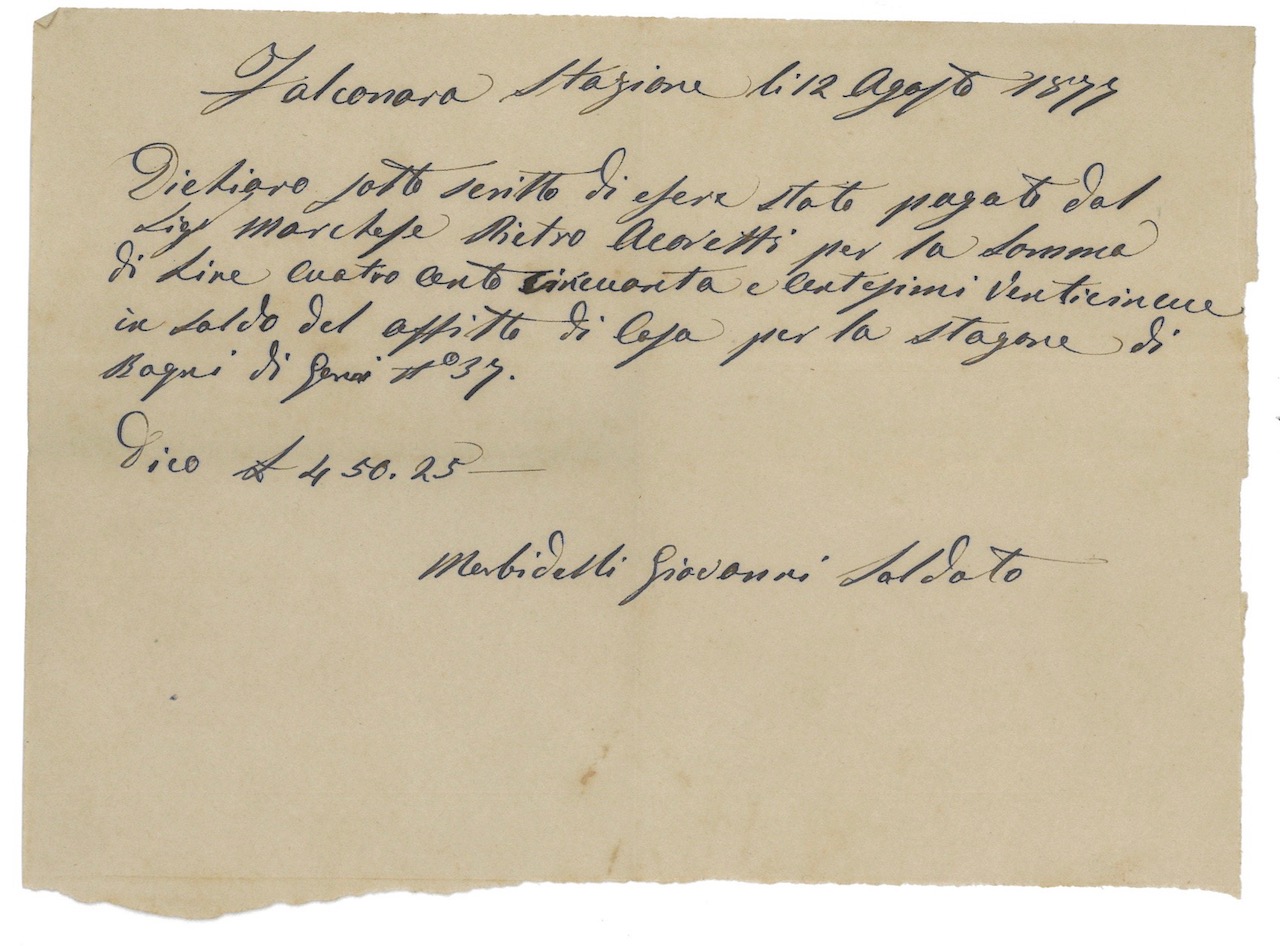 Falconara Stazione li 12 Agosto 1877
Dichiaro sotto scritto di esere stato pagato dal
Sigr Marchese Pietro Acoretti per la Somma
di Lire Cuatro Cento Cincuanta e Centesimi Venticincue
in Saldo del affitto di Casa per la stagone di
Bagni di N° 37.
Dico £ 450.25
Morbidelli Giovanni Saldato